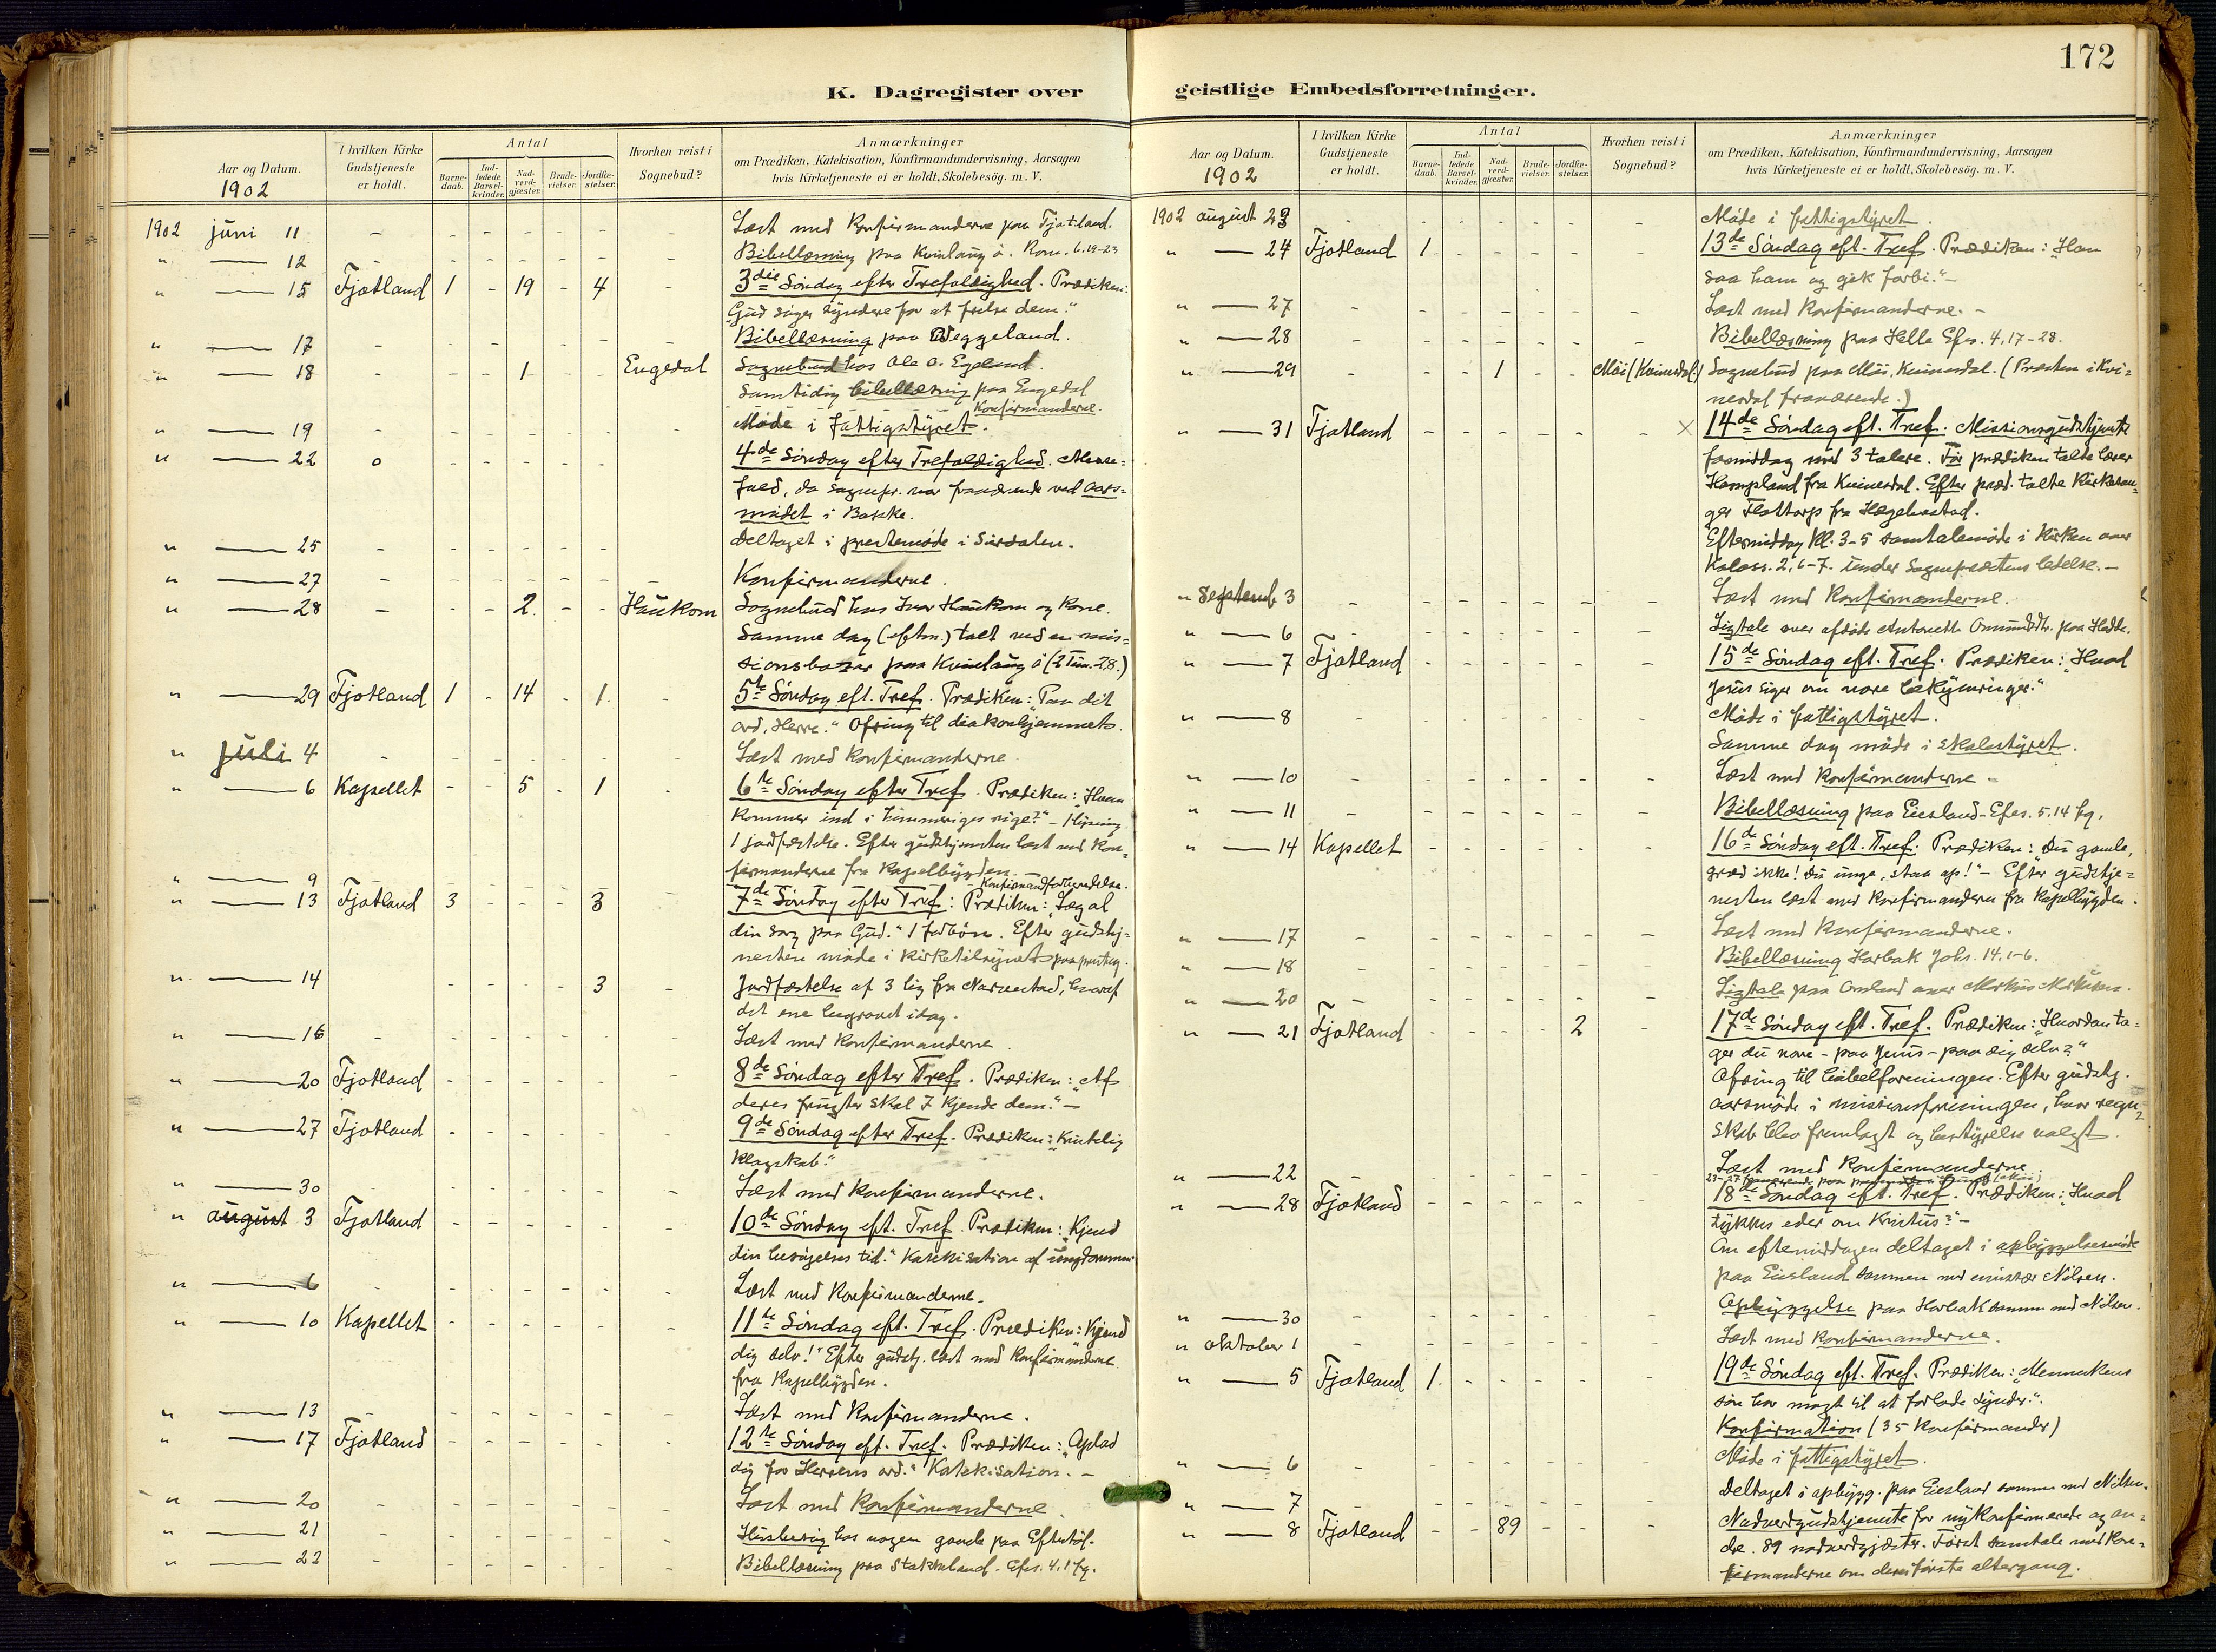 172
K. Dagregister over geistlige Embedsforretninger.
Aar og Datum.
1902
I hvilken Kirke Gudstjeneste er holdt.
Antal
Barnedaab.
Indledede Barselkvinder.
Nadverdgjester.
Brudevielser.
Jordfæstelser.
Hvorhen reist i Sognebud?
Anmærkninger
om Prædiken, Katekisation, Konfirmandundervisning, Aarsagen
hvis Kirketjeneste ei er holdt, Skolebesög. m. V.
1902 juni 11 - - - - - - - Læst med Konfirmanderne paa Fjotland.
" — 12 - - - - - - - Bibellæsning paa Kvinlaug ö. Rom. 6.19-23
" — 15 Fjotland 1 - 19 - 4 - 3die Söndag efter Trefoldighed. Prædiken:
"Gud söger syndere for at frelse dem."
" — 17 - - - - - - - Bibellæsning paa Veggeland.
" — 18 - - 1 - - Engedal Sognebud hos Ole O. Egeland.
Samtidig bibellæsning paa Engedal
Konfirmanderne.
" — 19 - - - - - - - Möde i fattigstyret.
" — 22 o - - - - - 4de Söndag efter Trefoldighed. Messe-
fald, da sognepr. var fraværende ved aars-
mödet i Bakke.
" — 25 - - - - - - Deltaget i prestemöde i Sirdalen.
" — 27 - - - - - - - Konfirmanderne.
" — 28 - - - 2. - - Haukom Sognebud hos Ivar Haukom og Kone.
Samme dag (eftm.) talt ved en mis-
sionsbasar paa Kvinlaug ö (2 Tim. 2.8.)
" — 29 Fjotland 1 - 14 - 1. - 5te Söndag eft. Tref. Prædiken: "Paa dit
ord, Herre." Ofring til diakonhjemmet.
" juli 4 - - - - - - Læst med Konfirmanderne.
" — 6 Kapellet - - 5 - 1 - 6te Söndag efter Tref. Prædiken: "Hvem
kommer ind i himmeriges rige?" -
1 jordfæstelse. Efter gudstjenesten læst med Kon-
firmanderne fra Kapelbygden.
" — 9 - - - - - - - Konfirmandforberedelse.
" — 13 Fjotland 3 - - - 3 - 7de Söndag efter Tref: Prædiken: "Læg al
din sorg paa Gud." 1 forbön. Efter gudstj-
nesten möde i kirketilsynet
" — 14 - - - - 3 - Jordfæstelse af 3 lig fra Narvestad, hvoraf
det ene begravet idag.
" — 16 - - - - - - - Læst med Konfirmanderne.
" — 20 Fjotland - - - - - - 8de Söndag efter Tref. Prædiken: "Af
deres frugter skal I kjende dem." -
" — 27 Fjotland - - - - - - 9de Söndag efter Tref. Prædiken: "Kristelig
klogskab."
" — 30 - - - - - - - Læst med Konfirmanderne.
" august 3 Fjotland - - - - - - 10de Söndag eft. Tref. Prædiken: "Kjend
din besögelses tid." Katekisation af ungdommen
" — 6 - - - - - - - Læst med Konfirmanderne.
" — 10 Kapellet - - - - - - 11te Söndag eft. Tref. Prædiken: "Kjend
dig selv!" Efter gudstj. læst med Konfirmanderne
fra Kapelbygden.
" — 13 - - - - - - - Læst med Konfirmanderne.
" — 17 Fjotland - - - - - - 12te Söndag eft. Tref. Prædiken: "Oplad
dig for Herrens ord." Katekisation. -
" — 20 - - - - - - - Læst med Konfirmanderne.
" — 21 - - - - - - - Husbesög hos nogen gamle paa Eftestöl.
" — 22 - - - - - - - Bibellæsning paa Stakkeland. Efes. 4.1 fg.
Aar og Datum.
1902
I hvilken Kirke Gudstjeneste er holdt.
Antal
Barnedaab.
Indledede Barselkvinder.
Nadverdgjester.
Brudevielser.
Jordfæstelser.
Hvorhen reist i Sognebud?
Anmærkninger
om Prædiken, Katekisation, Konfirmandundervisning, Aarsagen
hvis Kirketjeneste ei er holdt, Skolebesög. m. V.
1902 august 23 - - - - - - - Möde i fattigstyret.
" — 24 Fjotland 1 - - - - - 13de Söndag eft. Tref. Prædiken: "Han
saa ham og gik forbi." -
" — 27 - - - - - - - Læst med Konfirmanderne. -
" — 28 - - - - - - - Bibellæsning paa Helle Efes. 4,17-28.
" — 29 - - - 1 - - Möi (Kvinesdal) Sognebud paa Möi, Kvinesdal. (Presten i Kvi-
nesdal fraværende.)
" — 31 Fjotland - - - - - - X 14de Söndag eft. Tref. Missionsgudstjeneste
formiddag med 3 talere. För prædiken talte lærer
Kongland fra Kvinesdal. Efter præd. talte Kirkesan-
ger Flottorp fra Hægebostad.
Eftermiddag Kl. 3-5 samtalemöde i Kirken over
Koloss. 2,6-7. under Sogneprestens ledelse. -
" Septemb 3 - - - - - - - Læst med Konfirmanderne.
" — 6 - - - - - - - Ligtale over afdöde Antonette Omundsdtr. paa Hedde.
" — 7 Fjotland - - - - - - 15de Söndag eft. Tref. Prædiken: "Hvad
Jesus siger om vore bekymringer."
" — 8 - - - - - - - Möde i fattigstyret.
Samme dag möde i skolestyret.
" — 10 - - - - - - - Læst med Konfirmanderne -
" — 11 - - - - - - - Bibellæsning paa Eiesland-Efes. 5,14 fg.
" — 14 Kapellet - - - - - - 16de Söndag eft. Tref. Prædiken: "Du gamle,
græd ikke! du unge, staa op!" - Efter gudstje-
nesten læst med Konfirmanderne fra Kapelbygden.
" — 17 - - - - - - - Læst med Konfirmanderne.
" — 18 - - - - - - - Bibellæsning Horbak Johs. 14,1-6.
" — 20 - - - - - - - Ligtale paa Omland over Markus
" — 21 Fjotland - - - - 2 - 17de Söndag eft. Tref. Prædiken: "Hvordan ta-
ger du vare - paa Jesus - paa dig selv?"
Ofring til bibelforeningen. Efter gudstj.
aarsmöde i missionsforeningen, hvor regn-
skab blev fremlagt og bestyrelse valgt.
" — 22 - - - - - - - Læst med Konfirmanderne.
" — 28 Fjotland - - - - - - 18de Söndag eft. Tref. Prædiken: "Hvad
tykkes eder om Kristus?" -
Om eftermiddagen deltaget i opbyggelsesmöde
paa Eiesland sammen med emissær Nilsen.
" — 30 - - - - - - - Opbyggelse paa Horbak sammen med Nilsen.
" oktober 1 - - - - - - - Læst med Konfirmanderne.
" — 5 Fjotland 1. - - - - - 19de Söndag eft. Tref. Prædiken: "Menneskens
sön har magt til at forlade synder."
Konfirmation (35 Konfirmander)
" — 6 - - - - - - - Möde i fattigstyret.
" — 7 - - - - - - - Deltaget i opbygg. paa Eiesland sammen med Nilsen.
" — 8 Fjotland - - 89 - - - Nadverdgudstjeneste for nykonfirmerede og an-
dre. 89 nadverdgjester. Först samtale med Kon-
firmanderne om deres förste altergang.